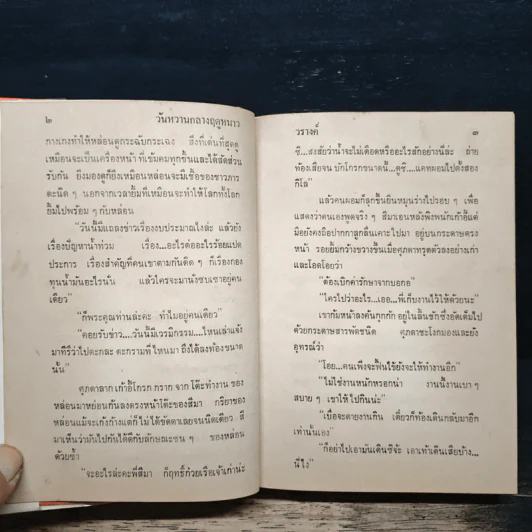 ๒ วันหวานกลางฤดูหนาว
กางเกงทำให้หล่อนดูกระฉับกระเฉง สิ่งที่เด่นที่สุดดู
เหมือนจะเป็นเครื่องหน้า ที่เข้มคมทุกชิ้นและได้สัดส่วน
รับกัน ยิ่งมองดูก็ยิ่งเหมือนหล่อนจะมีเชื้อของชาวภาร
ตะนิด ๆ นอกจากเวลายิ้มที่เหมือนจะทำให้โลกทั้งโลก
ยิ้มไปพร้อม ๆ กับหล่อน
"วันนี้มีแถลงข่าวเรื่องงบประมาณไงล่ะ แล้วยัง
เรื่องปัญหาน้ำท่วม เรื่อง...อะไรต่ออะไรร้อยแปด
ประการ เรื่องสำคัญที่คนเขาตามกันติด ๆ ก็เรื่องกอง
ทุนน้ำมันอะไรนั่น แล้วใครจะมานั่งซบเซาอยู่คน
เดียว"
"ก็พระคุณท่านล่ะคะ ทำไมอยู่คนเดียว"
"คอยรับข่าว....วันนี้มีเวรมีกรรม....ไหนเล่าแจ้ง
มาที่รีว่าไปตะกละ ตะกรามที่ไหนมา ถึงได้ลงท้องขนาด
นั้น"
ศุภตาลาก เก้าอี้โกรก กราก จาก โต๊ะทำงาน ของ
หล่อนมาหย่อนก้นลงตรงหน้าโต๊ะของสีมา กริยาของ
หล่อนแม้จะเก้งก้างแต่ก็ ไม่ได้ขัดตาเลยจนนิดเดียว สี
มาเห็นว่ามันไปกันได้ดีกับลักษณะซน ๆ ของหล่อน
ด้วยซ้ำ
"จะอะไรล่ะคะพี่สีมา ก็ฤทธิ์ก๋วยเรือเจ้าเก่าน่ะ
วรางค์ ๓
ซี...สงสัยว่าน้ำจะไม่เดือดหรืออะไรสักอย่างนี่ล่ะ ถ่าย
ท้องเสียจน ชักโกรกขนาดนี้...ดูซี....แคทผอมไปตั้งสอง
กิโล"
แล้วคนผอมก็ลุกขึ้นยืนหมุนร่างไปรอบ ๆ เพื่อ
แสดงว่าคนเองพูดจริง ๆ สีมาเอนหลังพิงพนักเก้าอี้แต่
มือยังคงถือปากกาลูกลื่นเคาะไปมา อยู่บนกระดาษตรง
หน้า รอยยิ้มกว้างขวางขึ้นเมื่อศุภตาทรุดตัวลงอย่างเก่า
และโอดโอยว่า
"ต้องเบิกค่ารักษาจากบอกอ"
"ใครไปว่าอะไร...เออ...พี่เก็บงานไว้ให้ด้วยนะ"
เขาก้มหน้าลงค้นกุกกัก อยู่ในลิ้นชักซึ่งอัดเต็มไป
ด้วยกระดาษสารพัดชนิด ศุภตาชะโงกมองและยัง
อุทรณ์ว่า
"โอย...คนเพิ่งจะฟื้นไข้ยังจะให้ทำงานอีก"
"ไม่ใช่งานหนักหรอกน่า งานนี้งานเบา ๆ
สบาย ๆ เขาให้ไปกินน่ะ"
"เบื่อจะตายงานกิน เดี๋ยวก็ท้องเดินกลับมาอีก
เท่านั้นเอง"
"ก็อย่าไปเอามันเดินซีจ้ะ เอาเท้าเดินเสียบ้าง...
นี่ไง"